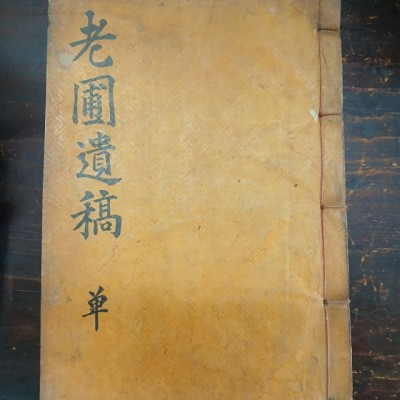 老圃遺稿
単